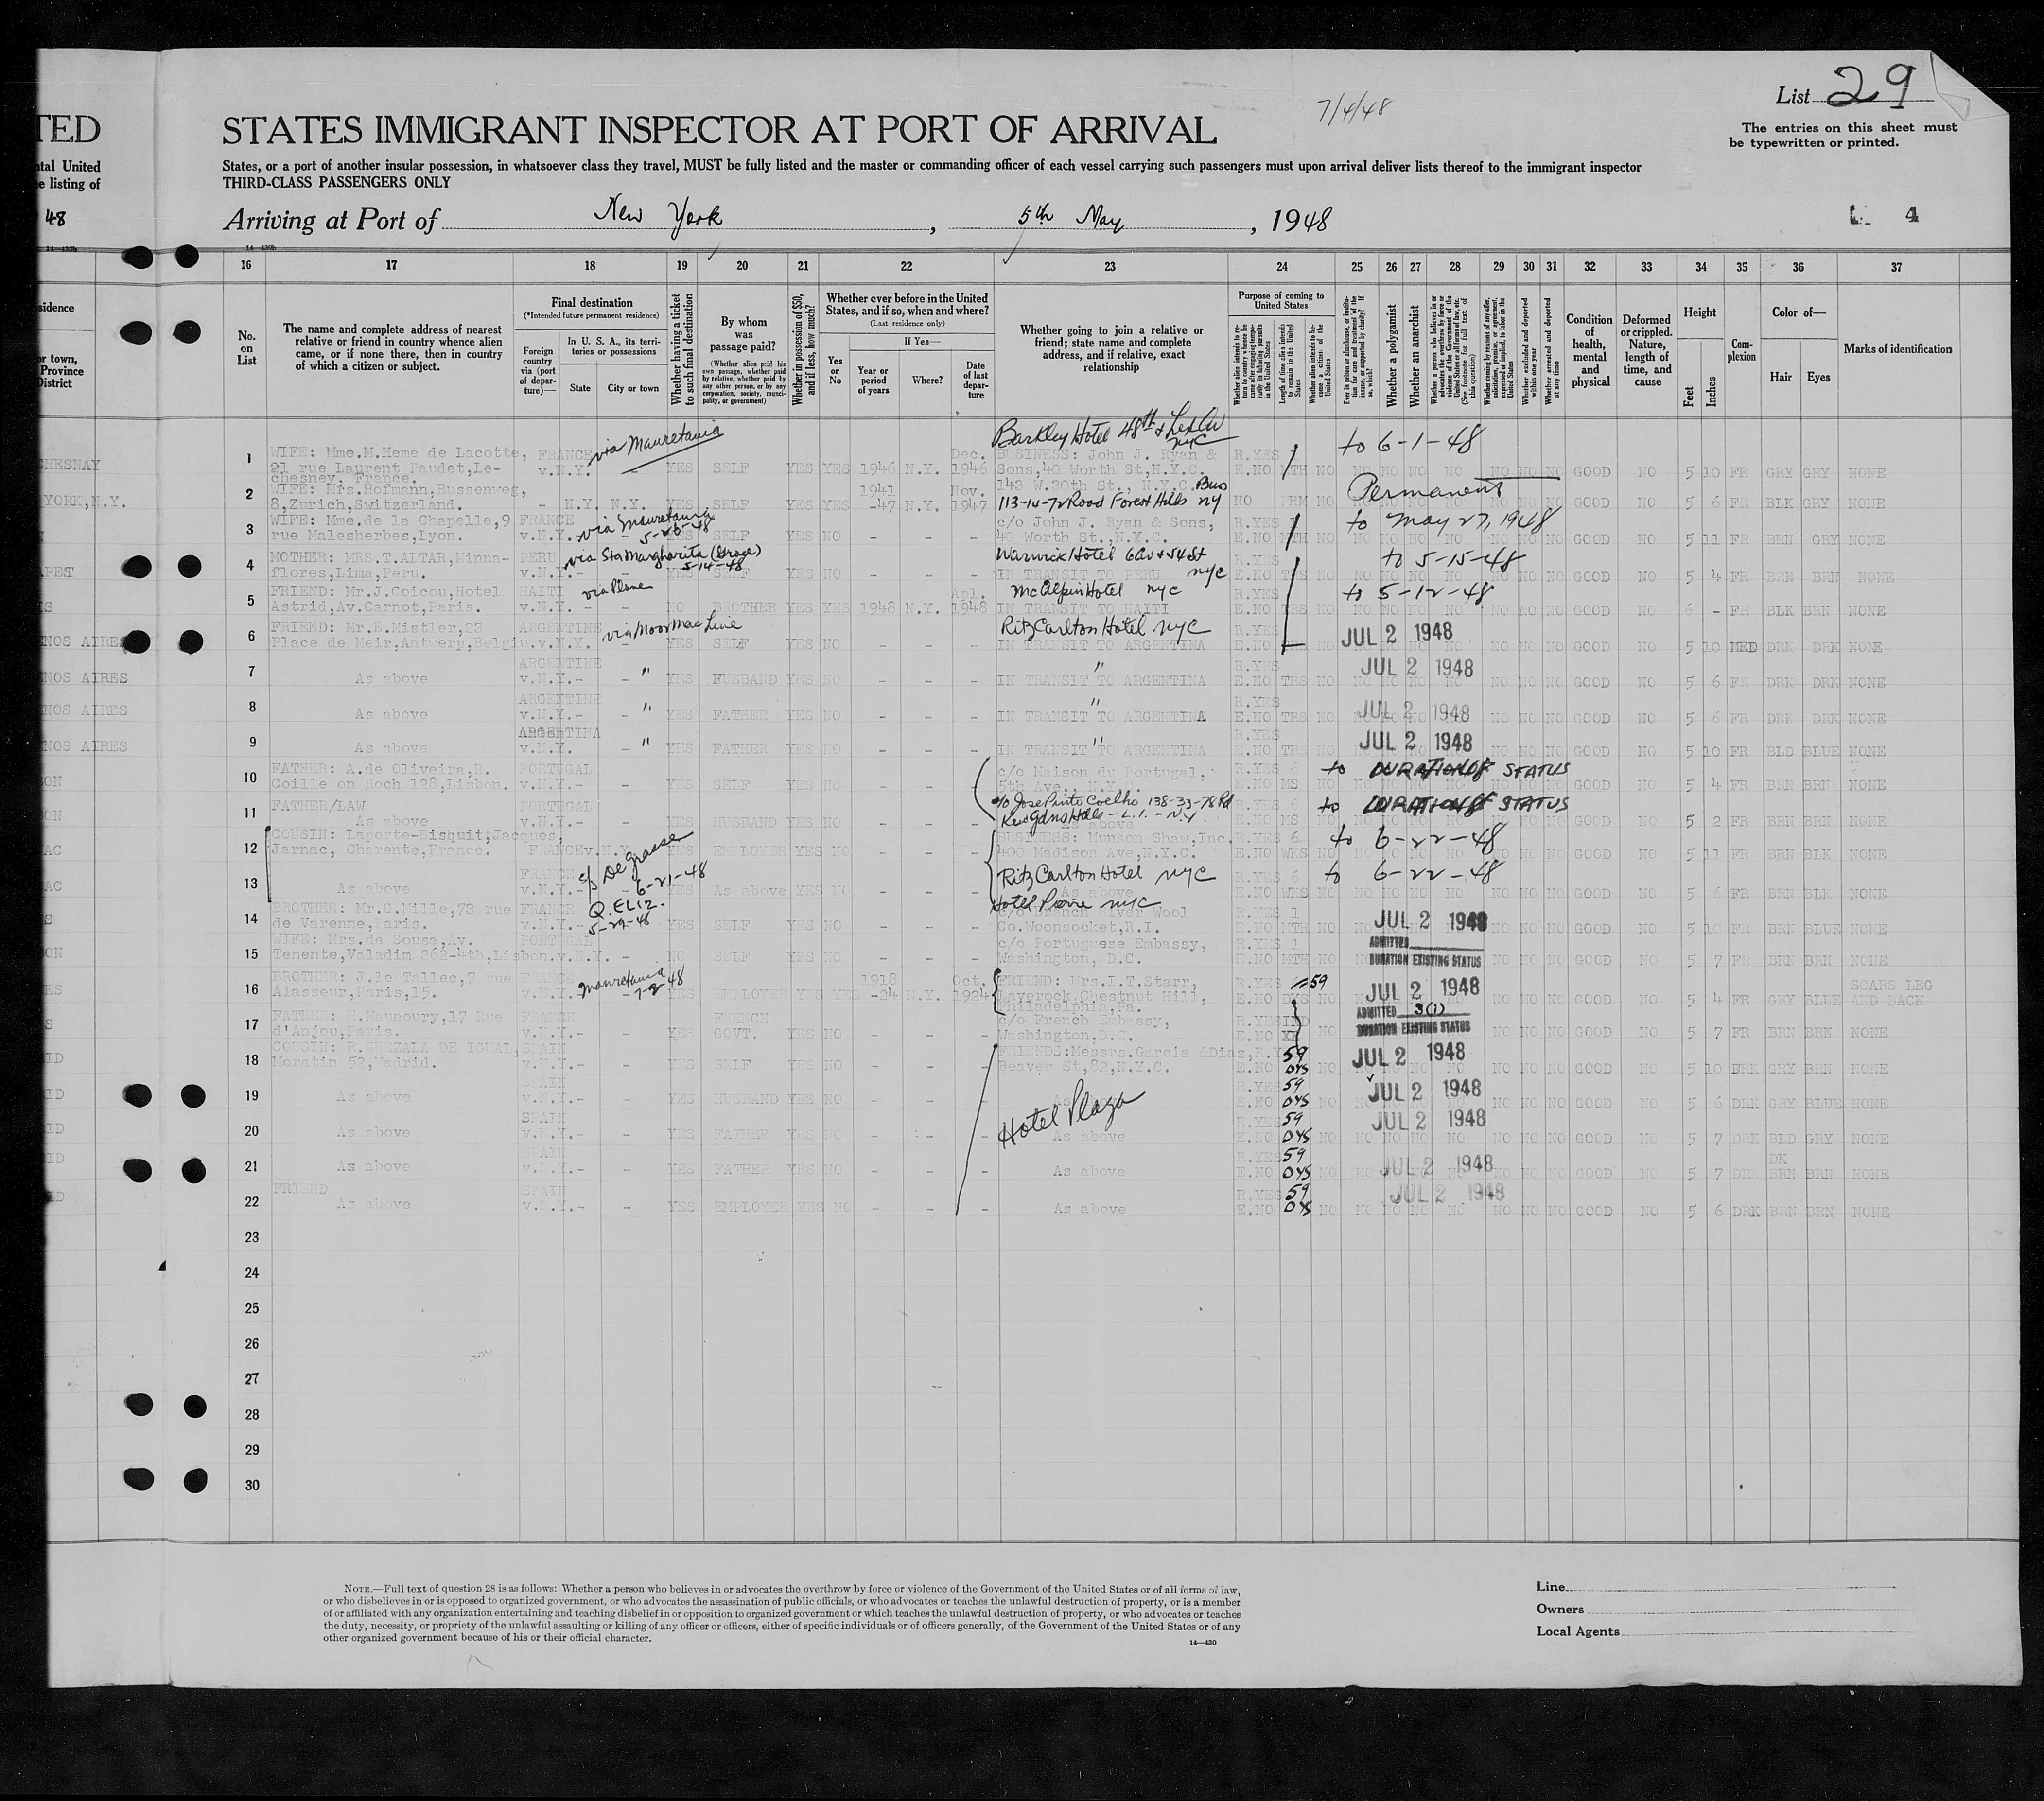 TED
ntal United
e listing of
48
7/4/48
List 29
The entries on this sheet must
be typewritten or printed.
STATES IMMIGRANT INSPECTOR AT PORT OF ARRIVAL
States, or a port of another insular possession, in whatsoever class they travel, MUST be fully listed and the master or commanding officer of each vessel carrying such passengers must upon arrival deliver lists thereof to the immigrant inspector
THIRD-CLASS PASSENGERS ONLY
Arriving at Port of New York, 5th May, 1948
4
14—430b
16 17 18 19 20 21 22 23 24 25 26 27 28 29 30 31 32 33 34 35 36 37
No. on List
The name and complete address of nearest relative or friend in country whence alien came, or if none there, then in country of which a citizen or subject.
Final destination
(*Intended future permanent residence)
Foreign country via (port of departure)—
In U. S. A., its territories or possessions
State
City or town
Whether having a ticket to such final destination
By whom was passage paid?
(Whether alien paid his own passage, whether paid by relative, whether paid by any other person, or by any corporation, society, municipality, or government)
Whether in possession of $50, and if less, how much?
Whether ever before in the United States, and if so, when and where?
(Last residence only)
Yes or No
If Yes—
Year or period of years
Where?
Date of last departure
Whether going to join a relative or friend; state name and complete address, and if relative, exact relationship
Purpose of coming to United States
Whether a polygamist
Whether an anarchist
Whether excluded and deported within one year
Whether arrested and deported at any time
Condition of health, mental and physical
Deformed or crippled. Nature, length of time, and cause
Height
Feet
Inches
Complexion
Color of—
Hair
Eyes
Marks of identification
Barkley Hotel 48th & Lex Av NYC
1 WIFE: Mme.M.Heme de Lacotte, FRANCE via Mauretania Dec. BUSINESS: John J. Ryan & R.YES to 6-1-48
21 rue Laurent Paudet,Le- v.N.Y. YES SELF YES YES 1946 N.Y. 1946 Sons,40 Worth St,N.Y.C. E.NO MTH NO NO NO NO NO NO NO NO GOOD NO 5 10 FR GRY GRY NONE
chesney, France.
2 WIFE: Mrs.Hofmann,Bussenweg, 1941 Nov. 143 W.30th St., N.Y.C. Bus Permanent
8,Zurich,Switzerland. - N.Y. N.Y. YES SELF YES YES -47 N.Y. 1947 113-14-72 Road Forest Hills NY NO PRM NO GOOD NO 5 6 FR BLK GRY NONE
3 WIFE: Mme.de la Chapelle,9 FRANCE via Mauretania c/o John J. Ryan & Sons, R.YES to May 27, 1948
rue Malesherbes,Lyon. v.N.Y. YES SELF YES NO - - - 40 Worth St.,N.Y.C. E.NO MTH NO GOOD NO 5 11 FR BRN GRY NONE
4 MOTHER: MRS.T.ALTAR,Minna- PERU via Sta Margharita (Grace) 5-14-48 Warwick Hotel 6 Av & 54 St NYC R.YES to 5-15-48
flores,Lima,Peru. v.N.Y.- - YES SELF YES NO - - - IN TRANSIT TO PERU E.NO TRS NO GOOD NO 5 4 FR BRN BRN NONE
5 FRIEND: Mr.J.Coicou,Hotel HAITI via Plane Apl. McAlpin Hotel NYC R.YES to 5-12-48
Astrid,Av.Carnot,Paris. v.N.Y. - - NO BROTHER YES YES 1948 N.Y. 1948 IN TRANSIT TO HAITI E.NO TRS NO GOOD NO 6 - FR BLK BRN NONE
6 FRIEND: Mr.E.Mistler,23 ARGENTINE via Moor Mac Line Ritz Carlton Hotel NYC R.YES JUL 2 1948
Place de Meir,Antwerp,Belgiu.v.N.Y. YES SELF YES NO - - - IN TRANSIT TO ARGENTINA E.NO NO GOOD NO 5 10 MED DRK DRK NONE
7 ARGENTINE " " R.YES JUL 2 1948
As above v.N.Y.- - YES HUSBAND YES NO - - - IN TRANSIT TO ARGENTINA E.NO TRS NO GOOD NO 5 6 FR DRK DRK NONE
8 ARGENTINE " " R.YES JUL 2 1948
As above v.N.Y.- - YES FATHER YES NO - - - IN TRANSIT TO ARGENTINA E.NO TRS NO GOOD NO 5 6 FR DRK DRK NONE
9 ARGENTINA " " R.YES JUL 2 1948
As above v.N.Y. - YES FATHER YES NO - - - IN TRANSIT TO ARGENTINA E.NO TRS NO GOOD NO 5 10 FR BLD BLUE NONE
10 FATHER: A.de Oliveira,R. PORTUGAL c/o Maison du Portugal, R.YES 6 to DURATION OF STATUS
Coille on Roch 128,Lisbon. v.N.Y.- - YES SELF YES NO - - - 5th Ave.,N.Y. E.NO MS NO GOOD NO 5 4 FR BRN BRN NONE
11 FATHER/LAW PORTUGAL c/o Jose Pinto Coelho 138-33-78 Rd R.YES 6 to DURATION OF STATUS
As above v.N.Y.- - YES HUSBAND YES NO - - - Kew Gdns Hills - L.I. - N.Y. As above E.NO MS NO GOOD NO 5 2 FR BRN BRN NONE
12 COUSIN: Laporte-Bisquit,Jacques, BUSINESS: Munson Shaw,Inc. R.YES 6 to 6-22-48
Jarnac, Charente,France. FRANCEv.N.Y. s/s De Grasse 6-21-48 YES EMPLOYER YES NO - - - 400 Madison Ave,N.Y.C. E.NO WKS NO GOOD NO 5 11 FR BRN BLK NONE
13 FRANCE Ritz Carlton Hotel NYC R.YES 6 to 6-22-48
As above v.N.Y.- - YES As above YES NO - - - As above E.NO WKS NO GOOD NO 5 6 FR BRN BLK NONE
14 BROTHER: Mr.G.Mille,73 rue FRANCE Q. ELIZ. 5-29-48 Hotel Pierre NYC c/o French River Wool R.YES 1 JUL 2 1948
de Varenne,Paris. v.N.Y.- YES SELF YES NO - - - Co.Woonsocket,R.I. E.NO MTH NO GOOD NO 5 10 FR BRN BLUE NONE
15 WIFE: Mrs.de Sousa,Av. PORTUGAL c/o Portuguese Embassy, R.YES 1 ADMITTED
Tenente,Valadim 262-4th,Lisbon.v.N.Y. - NO SELF YES NO - - - Washington, D.C. E.NO MTH NO DURATION EXISTING STATUS GOOD NO 5 7 FR BRN BRN NONE
16 BROTHER: J.le Tallec,7 rue FRANCE Mauretania 1918 Oct. FRIEND: Mrs.I.T.Starr, R.YES 59 JUL 2 1948 SCARS LEG
Alasseur,Paris,15. v.N.Y.- YES EMPLOYER YES YES -24 N.Y. 1924 Laverock,Chestnut Hill, E.NO DYS NO GOOD NO 5 4 FR GRY BLUE AND BACK
Philadelphia,Pa.
17 FATHER: H.Maunoury,17 Rue FRANCE FRENCH c/o French Embassy, R.YES IND ADMITTED 3(1)
d'Anjou,Paris. v.N.Y.- - YES GOVT. YES NO - - - Washington,D.C. E.NO NO DURATION EXISTING STATUS GOOD NO 5 7 FR BRN BRN NONE
18 COUSIN: R.GUEZALA DE IGUAL,SPAIN FRIENDS:Messrs.Garcia &Diaz, 59 JUL 2 1948
Moratin 52,Madrid. v.N.Y.- - YES SELF YES NO - - - Beaver St,82,N.Y.C. E.NO DYS NO GOOD NO 5 10 DRK GRY BRN NONE
19 SPAIN R.YES 59 JUL 2 1948
As above v.N.Y.- - YES HUSBAND YES NO - - - Hotel Plaza E.NO DYS NO GOOD NO 5 6 DRK GRY BLUE NONE
20 SPAIN R.YES 59 JUL 2 1948
As above v.N.Y.- - YES FATHER YES NO - - - As above E.NO DYS NO GOOD NO 5 7 DRK BLD GRY NONE
21 SPAIN R.YES 59 JUL 2 1948 DK
As above v.N.Y.- - YES FATHER YES NO - - - As above E.NO DYS NO GOOD NO 5 7 DRK BRN BRN NONE
22 FRIEND SPAIN R.YES 59 JUL 2 1948
As above v.N.Y.- - YES EMPLOYER YES NO - - - As above E.NO DYS NO GOOD NO 5 6 DRK BRN BRN NONE
23
24
25
26
27
28
29
30
NOTE.—Full text of question 28 is as follows: Whether a person who believes in or advocates the overthrow by force or violence of the Government of the United States or of all forms of law,
or who disbelieves in or is opposed to organized government, or who advocates the assassination of public officials, or who advocates or teaches the unlawful destruction of property, or is a member
of or affiliated with any organization entertaining and teaching disbelief in or opposition to organized government or which teaches the unlawful destruction of property, or who advocates or teaches
the duty, necessity, or propriety of the unlawful assaulting or killing of any officer or officers, either of specific individuals or of officers generally, of the Government of the United States or of any
other organized government because of his or their official character.
14—430
Line
Owners
Local Agents